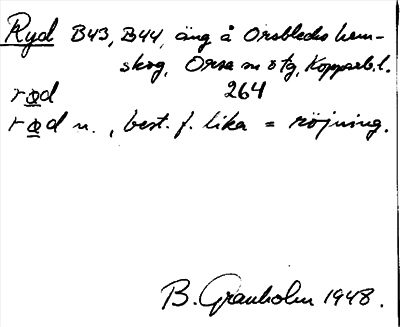 Ryd B43, B44, äng å Orsbleds hem-
skog, Orsa sn o tg, Kopparb.l.
rød 264
rød n., best. f. lika = röjning.
B. Granholm 1948.